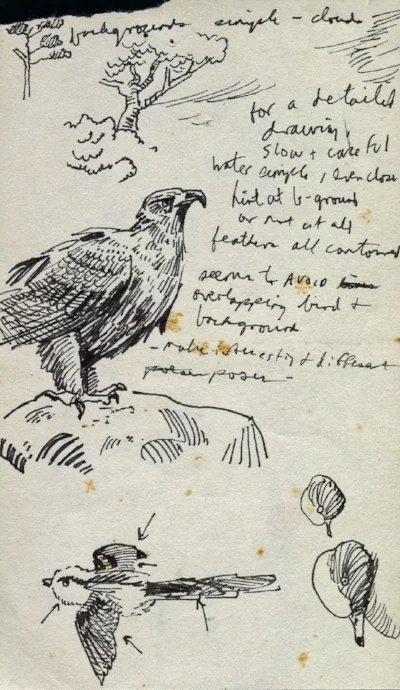 backgrounds simple - clouds
for a detailed
drawing,
slow + careful
water simple, even close
hint at b-ground
or not at all
feathers all contoured
seems to AVOID
overlapping bird +
background
- make interesting + different
poses -